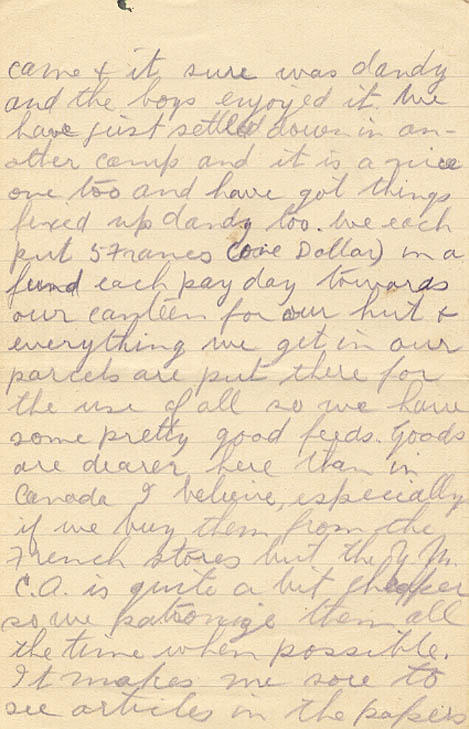 came & it sure was dandy
and the boys enjoyed it. We
have just settled down in an-
other camp and it is a nice
one too and have got things
fixed up dandy too. We each
put 5 Francs (one Dollar) in a
fund each pay day towards
our canteen for our hut &
everything we get in our
parcels are put there for
the use of all so we have
some pretty good feeds. Goods
are dearer here than in
Canada I believe, especially
if we buy them from the
French stores but the Y.M.
C.A. is quite a bit cheaper
so we patronize them all
the time when possible.
It makes me sore to
see articles in the papers